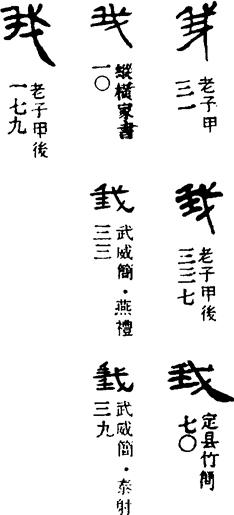 我
老子甲
三一
我
老子甲後
三三七
我
定县竹簡
七〇
我
縱橫家書
一〇
我
武威簡·燕禮
三三
我
武威簡·泰射
三九
我
老子甲後
一七九